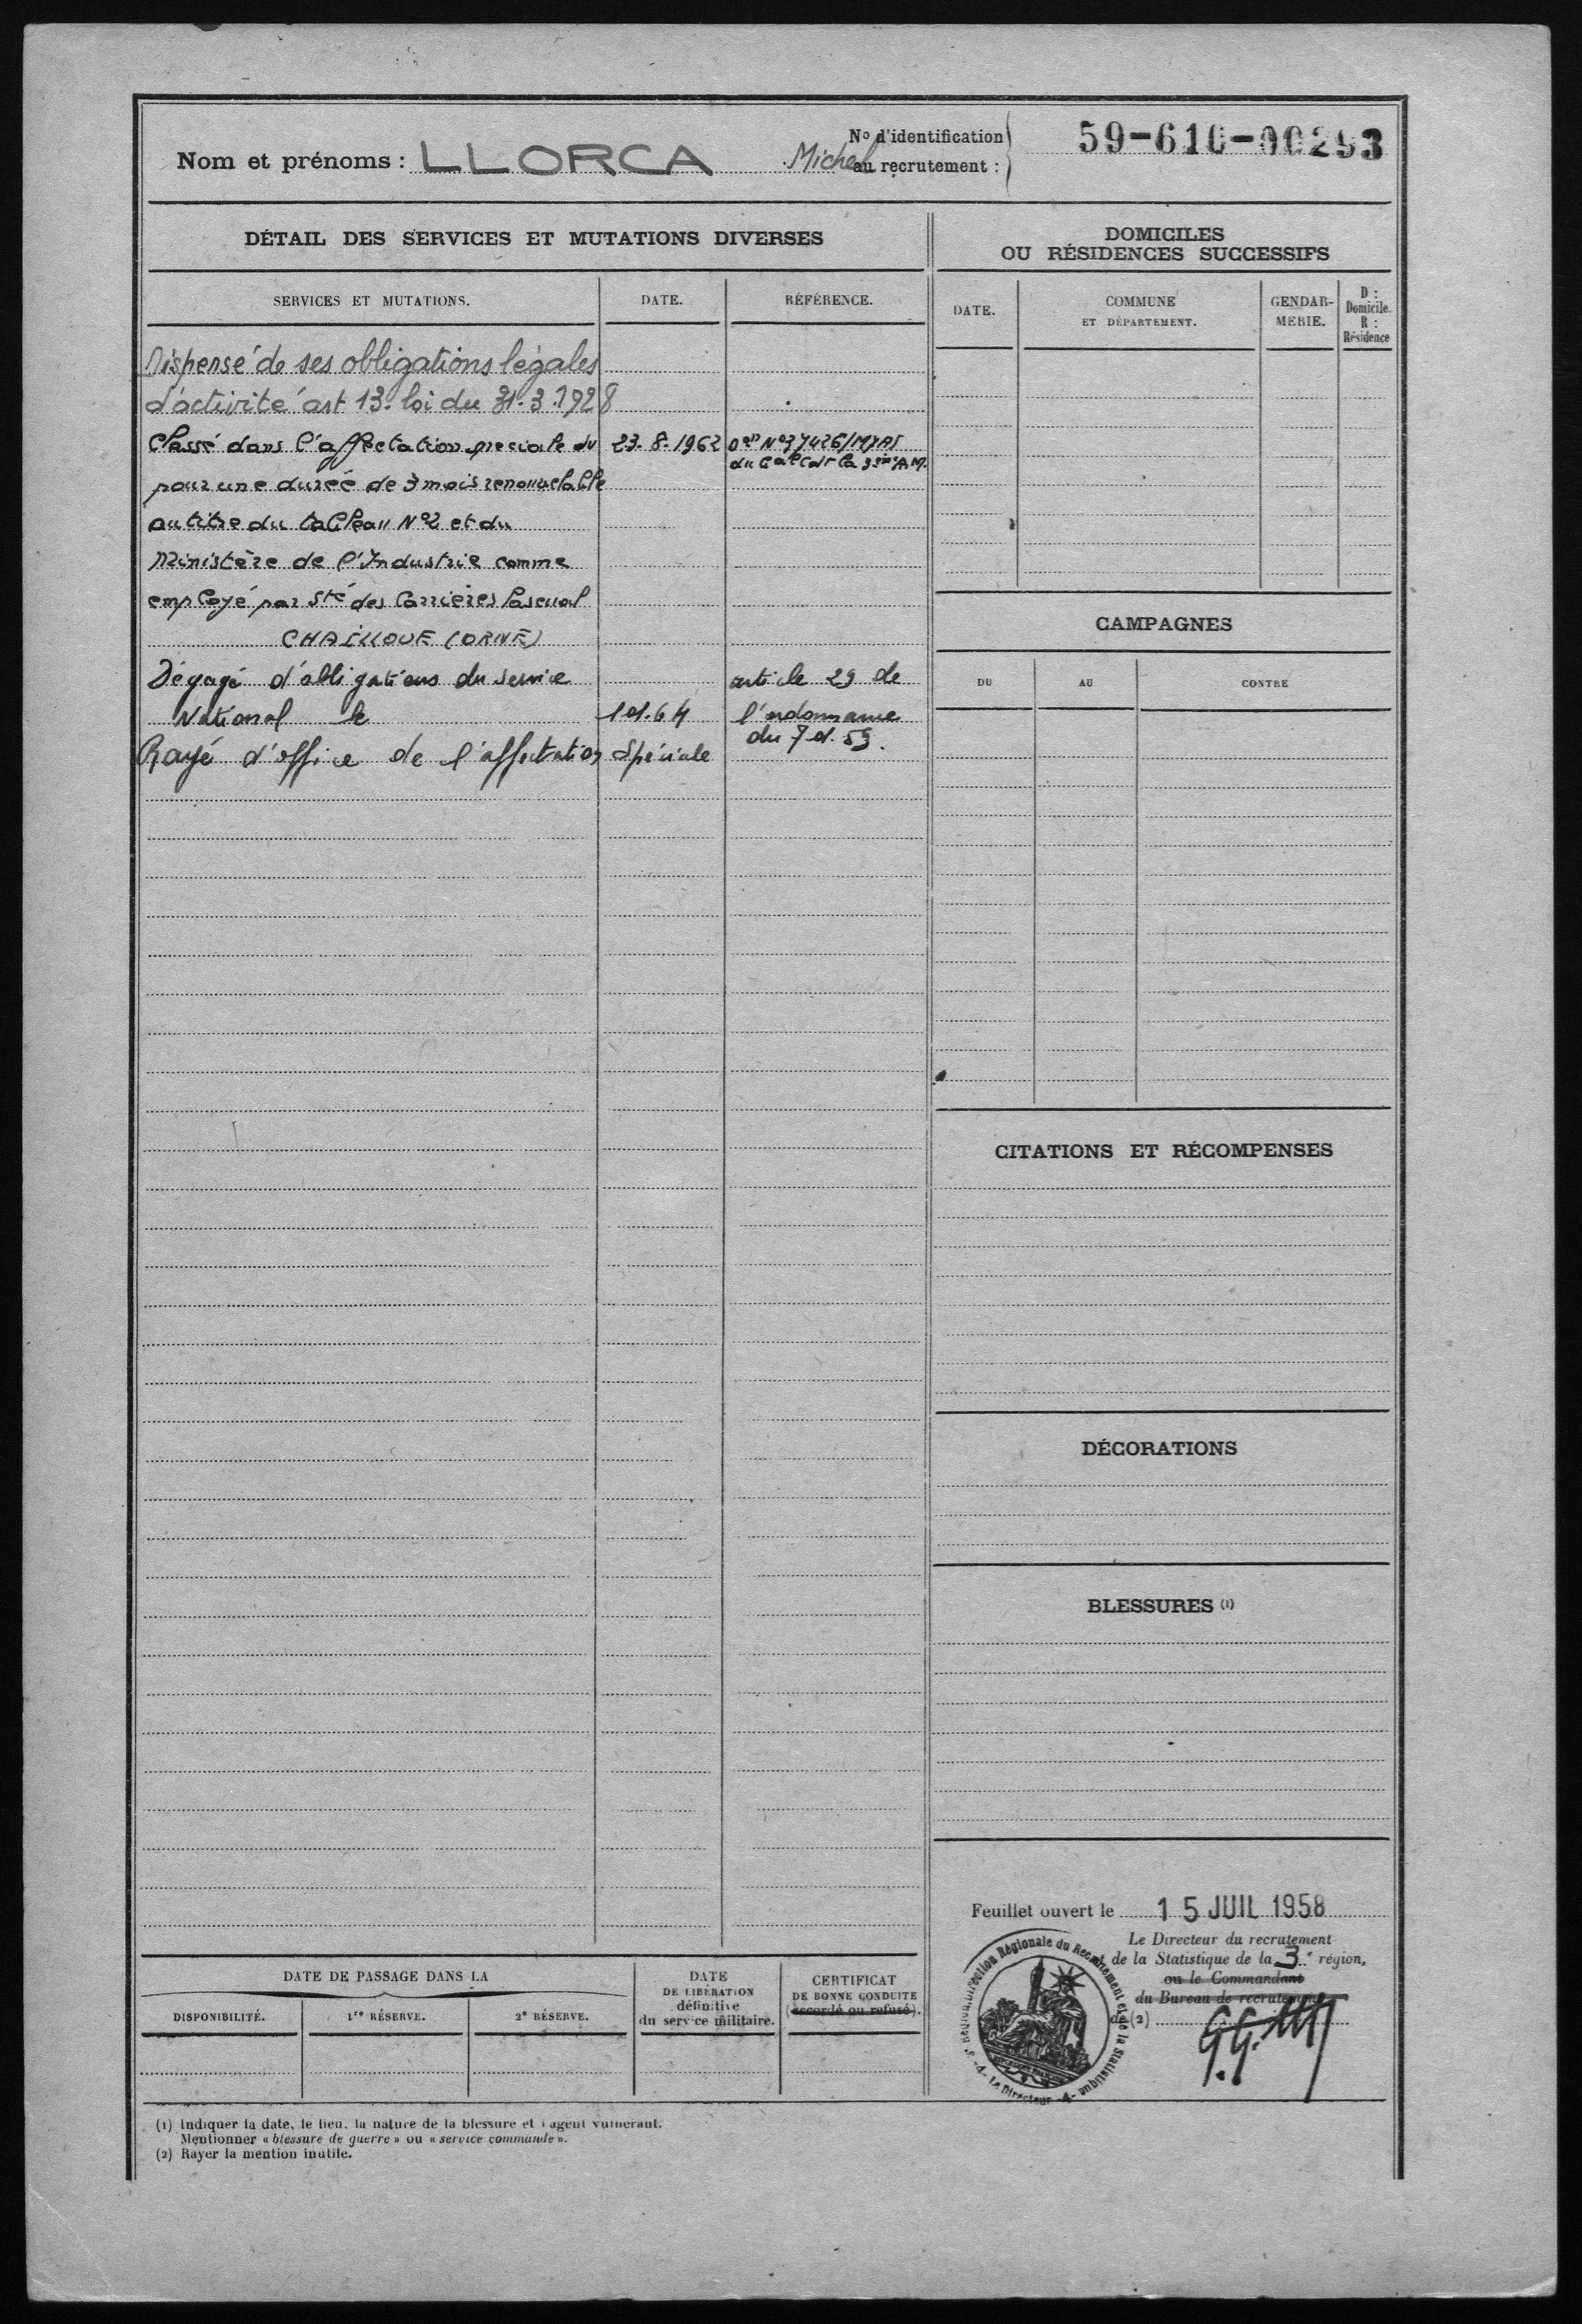 Nom et prénoms : LLORCA Michel
N° d'identification au recrutement : 59-610-00293
DÉTAIL DES SERVICES ET MUTATIONS DIVERSES
SERVICES ET MUTATIONS.
DATE.
RÉFÉRENCE.
Dispensé de ses obligations légales
d'activité art 13. loi du 31.3.1928
Classé dans l'affectation speciale du 23.8.1962
du
pour une durée de 3 mois renouvelable
au titre du tableau N°2 et du
Ministère de l'Industrie comme
employé par Sté des Carrières Pascual
CHAILLOUE (ORNE)
Dégagé d'obligations du service article 29 de
National le 1.1.64 l'ordonnance
du 7.1.59.
Rayé d'office de l'affectation Spéciale
DOMICILES
OU RÉSIDENCES SUCCESSIFS
DATE.
COMMUNE
ET DÉPARTEMENT.
GENDAR-
MERIE.
D :
Domicile.
R :
Résidence
CAMPAGNES
DU
AU
CONTRE
CITATIONS ET RÉCOMPENSES
DÉCORATIONS
BLESSURES (1)
Feuillet ouvert le 15 JUIL 1958
Le Directeur du recrutement
de la Statistique de la 3e région,
ou le Commandant
du Bureau de recrutement
de (2)
Direction Régionale du Recrutement et de la Statistique
Le Directeur
DATE DE PASSAGE DANS LA
DISPONIBILITÉ.
1re RÉSERVE.
2e RÉSERVE.
DATE
DE LIBÉRATION
définitive
du service militaire.
CERTIFICAT
DE BONNE CONDUITE
(accordé ou refusé).
(1) Indiquer la date, le lieu, la nature de la blessure et l'agent vulnérant.
Mentionner « blessure de guerre » ou « service commandé ».
(2) Rayer la mention inutile.